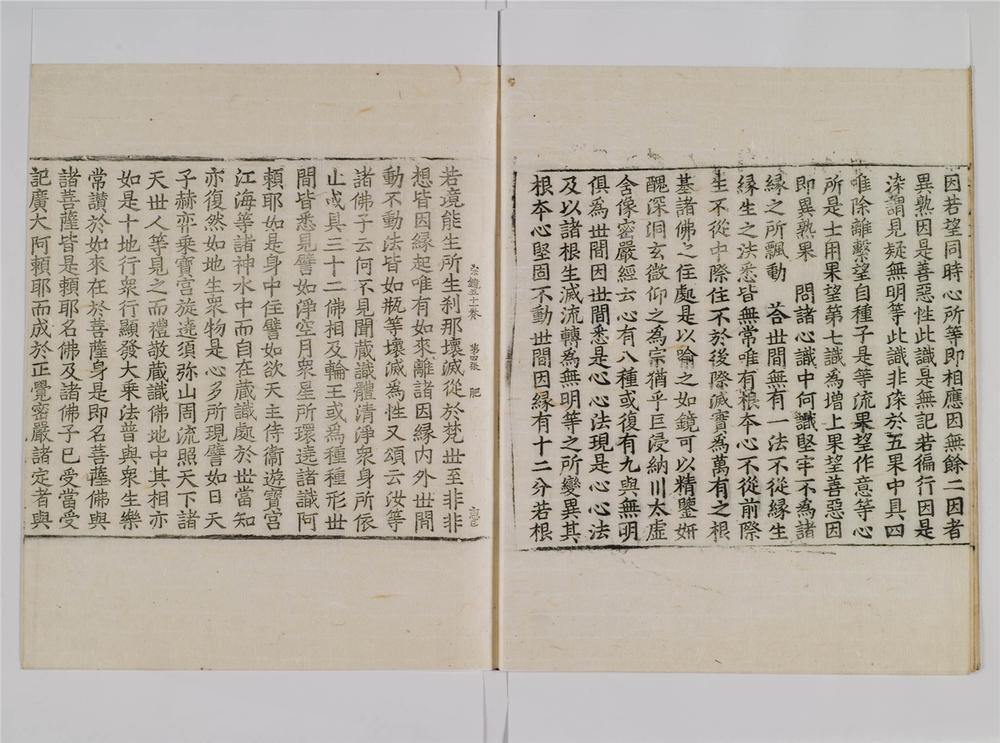 因若望同時心所等即相應因無餘二因者
異熟因是善惡性此識是無記若徧行因是
染謂見疑無明等此識非染於五果中具四
唯除離繫望自種子是等流果望作意等心
所是士用果望第七識爲增上果望善惡因
即異熟果　問諸心識中何識堅牢不爲諸
緣之所飄動　荅世間無有一法不從緣生
緣生之法悉皆無常唯有根本心不從前際
生不從中際住不於後際滅實爲萬有之根
基諸佛之住處是以喻之如鏡可以精鑒妍
醜深洞玄微仰之爲宗猶乎巨浸納川太虛
含像密嚴經云心有八種或復有九與無明
俱爲世間因世間悉是心心法現是心心法
及以諸根生滅流轉爲無明等之所變異其
根本心堅固不動世間因緣有十二分若根
若境能生所生剎那壞滅從於梵世至非非
想皆因緣起唯有如來離諸因緣內外世間
動不動法皆如瓶等壞滅爲性又頌云汝等
諸佛子云何不見聞藏識體清淨衆身所依
止或具三十二佛相及輪王或爲種種形世
間皆悉見譬如淨空月衆星所環遶諸識阿
賴耶如是身中住譬如欲天主侍衞遊寶宮
江海等諸神水中而自在藏識處於世當知
亦復然如地生衆物是心多所現譬如日天
子赫弈乘寶宮旋遶須弥山周流照天下諸
天世人等見之而禮敬藏識佛地中其相亦
如是十地行衆行顯發大乘法普與衆生樂
常讚於如來在於菩薩身是即名菩薩佛與
諸菩薩皆是賴耶名佛及諸佛子已受當受
記廣大阿賴耶而成於正覺密嚴諸定者與